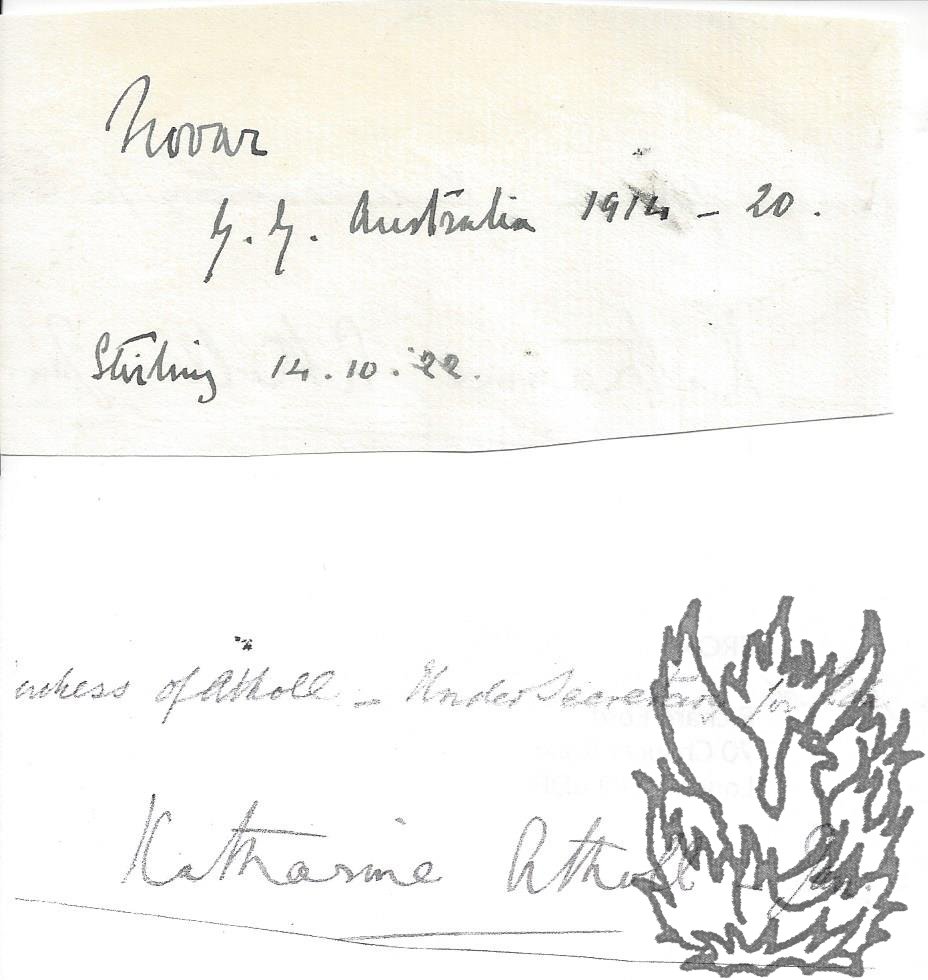 Novar
G. G. Australia 1914 - 20.
Stirling 14.10.'22.
uchess of Atholl - Under Secretary for
Katharine Atholl